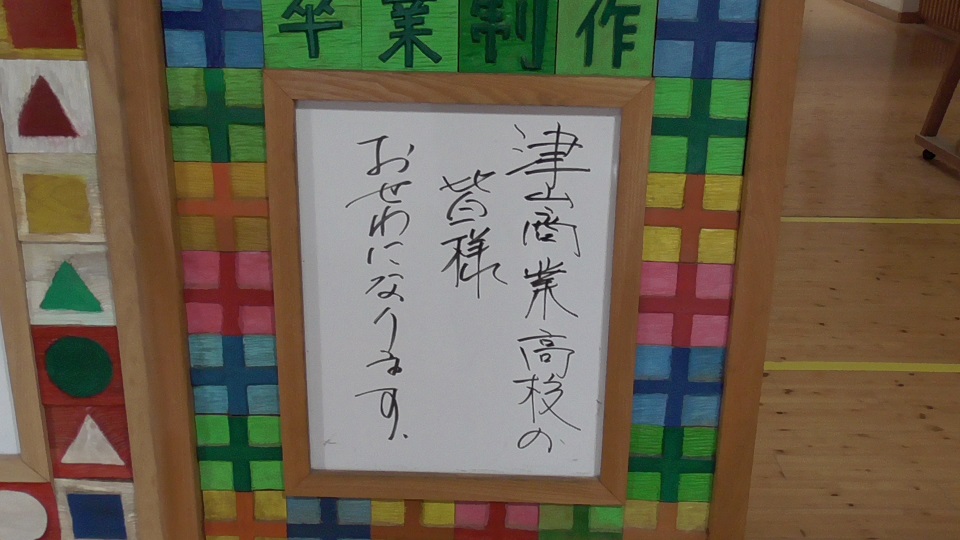 卒業制作
津山商業高校の
皆様
おせわになります。